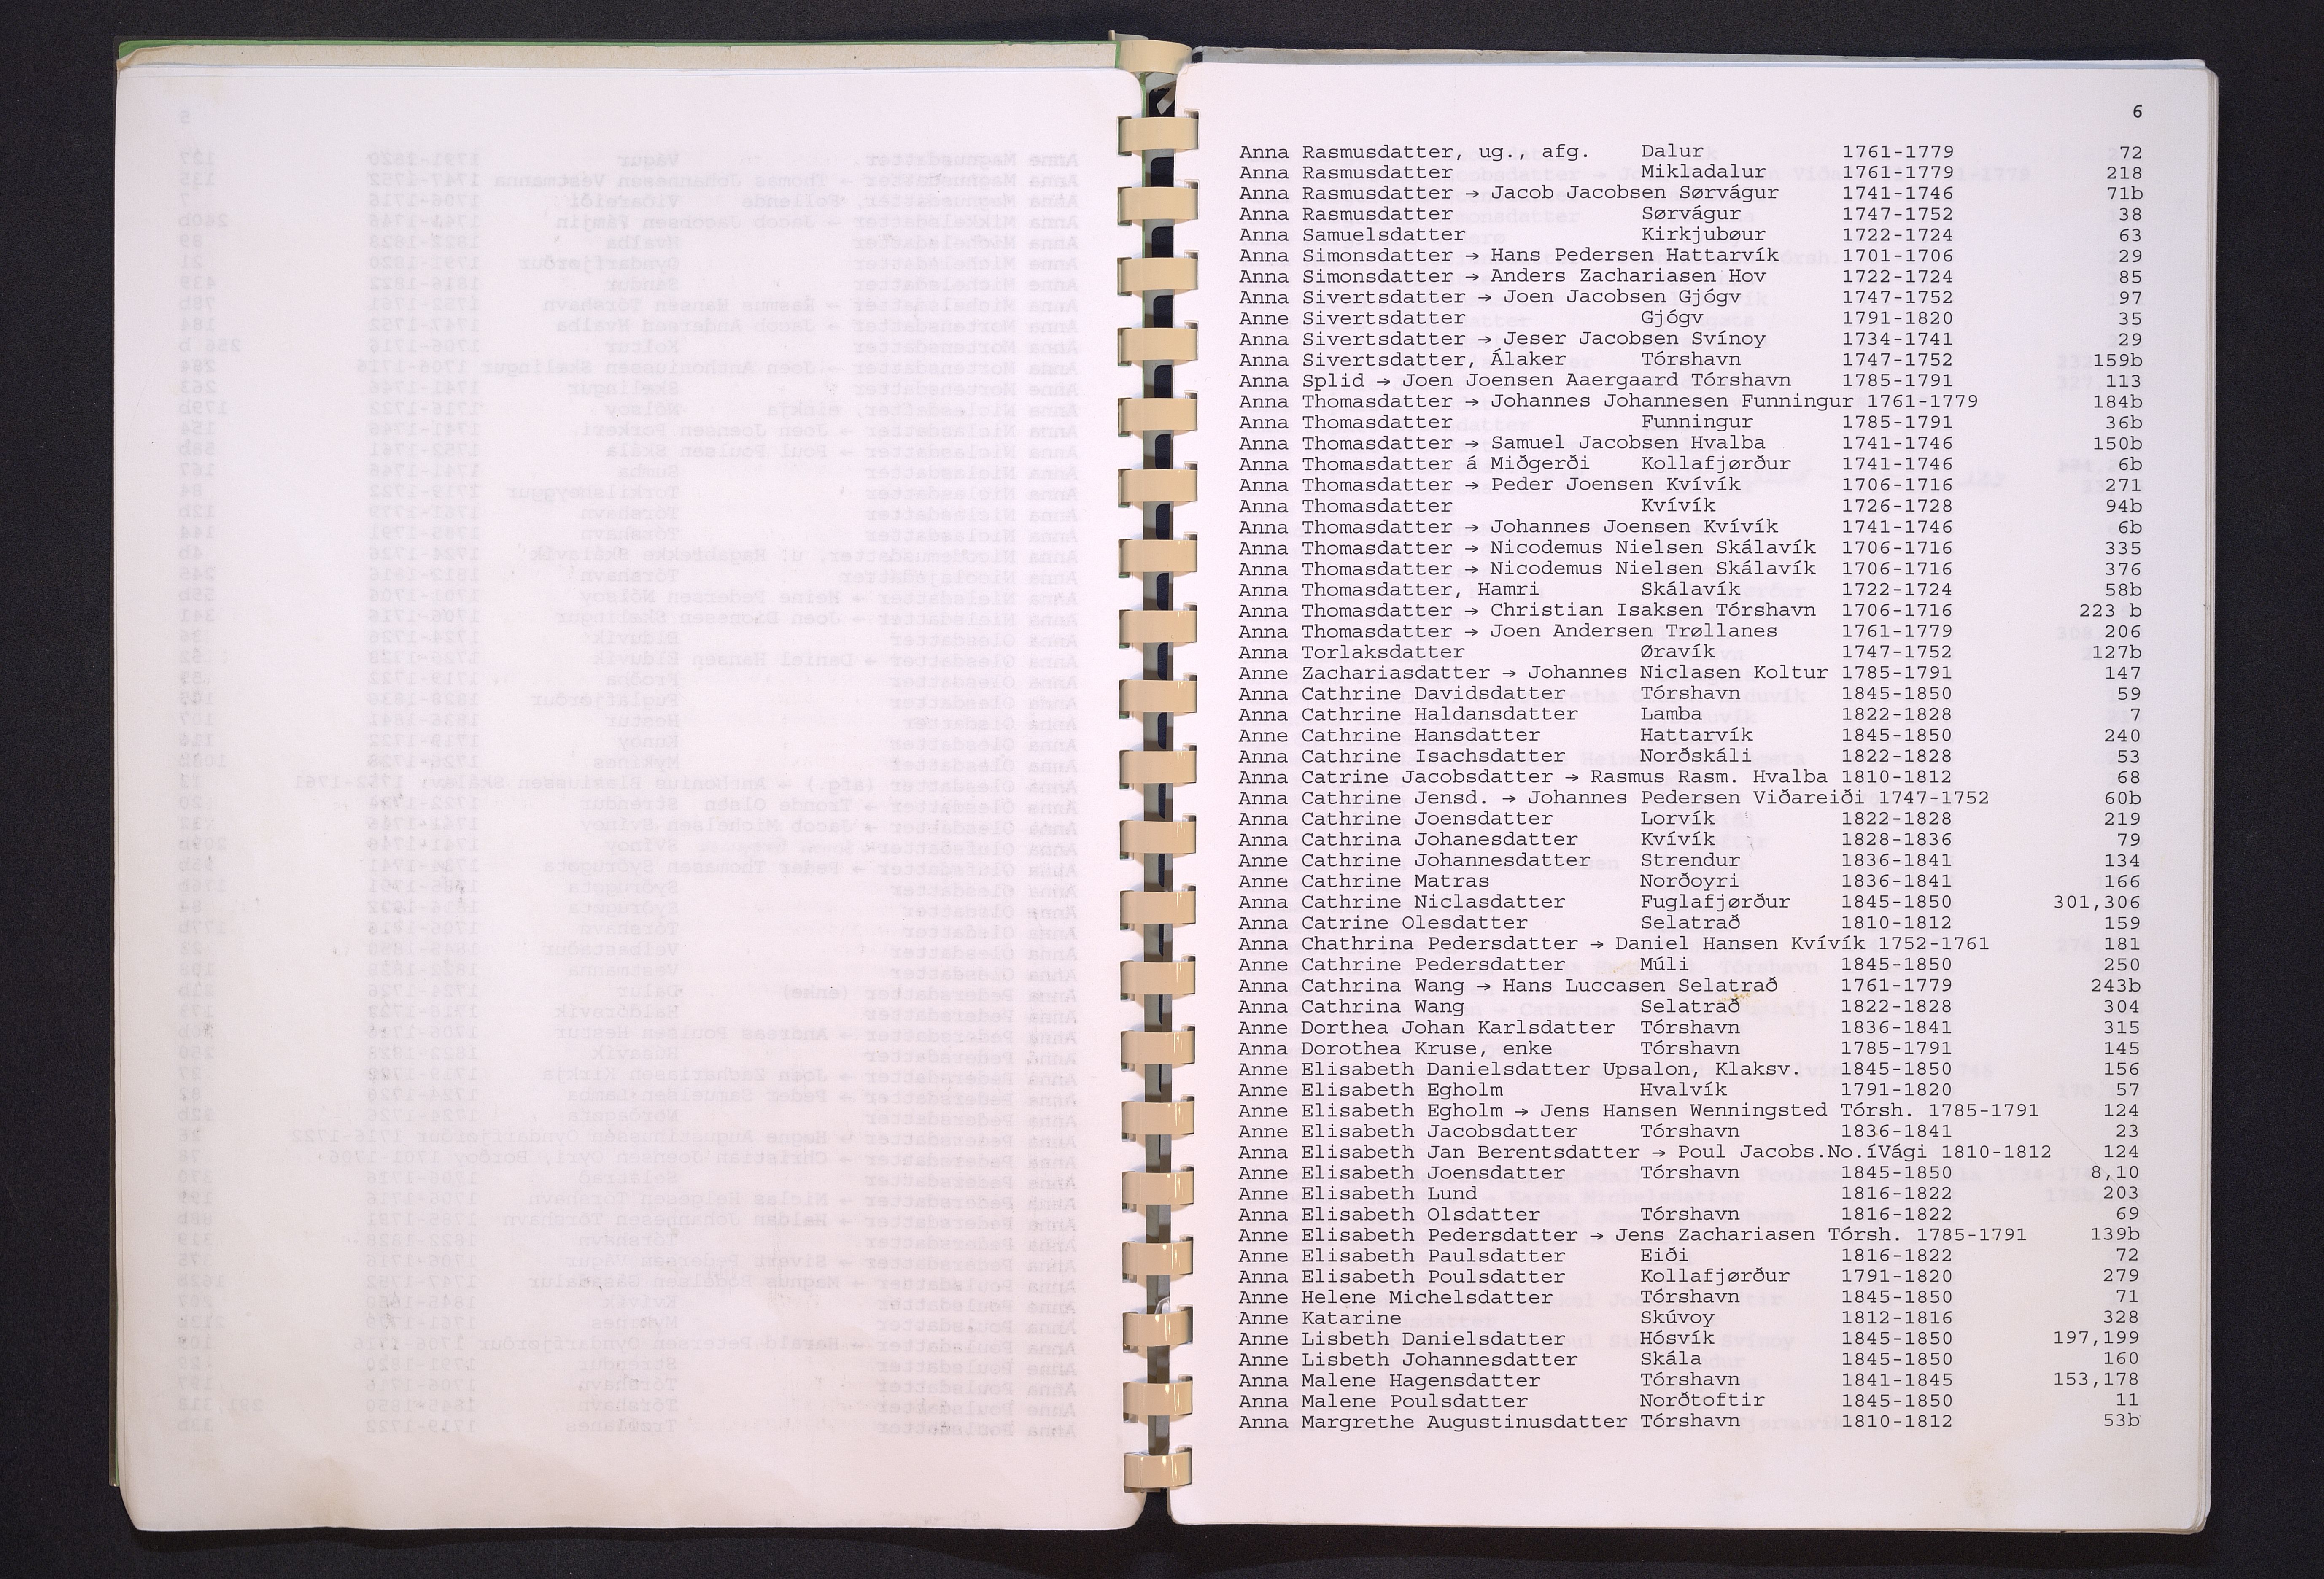 6
Anna Rasmusdatter, ug., afg. Dalur 1761-1779 72
Anna Rasmusdatter Mikladalur 1761-1779 218
Anna Rasmusdatter → Jacob Jacobsen Sørvágur 1741-1746 71b
Anna Rasmusdatter Sørvágur 1747-1752 38
Anna Samuelsdatter Kirkjubøur 1722-1724 63
Anna Simonsdatter → Hans Pedersen Hattarvík 1701-1706 29
Anna Simonsdatter → Anders Zachariasen Hov 1722-1724 85
Anna Sivertsdatter → Joen Jacobsen Gjógv 1747-1752 97
Anne Sivertsdatter Gjógv 1791-1820 35
Anna Sivertsdatter → Jeser Jacobsen Svínoy 1734-1741 29
Anna Sivertsdatter, Álaker Tórshavn 1747-1752 159b
Anna Splid → Joen Joensen Aaergaard Tórshavn 1785-1791 113
Anna Thomasdatter → Johannes Johannesen Funningur 1761-1779 184b
Anna Thomasdatter Funningur 1785-1791 36b
Anna Thomasdatter → Samuel Jacobsen Hvalba 1741-1746 150b
Anna Thomasdatter á Miðgerði Kollafjørður 1741-1746 6b
Anna Thomasdatter → Peder Joensen Kvívík 1706-1716 271
Anna Thomasdatter Kvívík 1726-1728 94b
Anna Thomasdatter → Johannes Joensen Kvívík 1741-1746 6b
Anna Thomasdatter → Nicodemus Nielsen Skálavík 1706-1716 335
Anna Thomasdatter → Nicodemus Nielsen Skálavík 1706-1716 376
Anna Thomasdatter, Hamri Skálavík 1722-1724 58b
Anna Thomasdatter → Christian Isaksen Tórshavn 1706-1716 223 b
Anna Thomasdatter → Joen Andersen Trøllanes 1761-1779 206
Anna Torlaksdatter Øravík 1747-1752 127b
Anne Zachariasdatter → Johannes Niclasen Koltur 1785-1791 147
Anna Cathrine Davidsdatter Tórshavn 1845-1850 59
Anna Cathrine Haldansdatter Lamba 1822-1828 7
Anne Cathrine Hansdatter Hattarvík 1845-1850 240
Anna Cathrine Isachsdatter Norðskáli 1822-1828 53
Anna Catrine Jacobsdatter → Rasmus Rasm. Hvalba 1810-1812 68
Anna Cathrine Jensd. → Johannes Pedersen Viðareiði 1747-1752 60b
Anna Cathrine Joensdatter Lorvík 1822-1828 219
Anna Cathrina Johanesdatter Kvívík 1828-1836 79
Anne Cathrine Johannesdatter Strendur 1836-1841 134
Anne Cathrine Matras Norðoyri 1836-1841 166
Anna Cathrine Niclasdatter Fuglafjørður 1845-1850 301,306
Anna Catrine Olesdatter Selatrað 1810-1812 159
Anna Chathrina Pedersdatter → Daniel Hansen Kvívík 1752-1761 181
Anne Cathrine Pedersdatter Múli 1845-1850 250
Anna Cathrina Wang → Hans Luccasen Selatrað 1761-1779 243b
Anna Cathrina Wang Selatrað 1822-1828 304
Anne Dorthea Johan Karlsdatter Tórshavn 1836-1841 315
Anna Dorothea Kruse, enke Tórshavn 1785-1791 145
Anne Elisabeth Danielsdatter Upsalon, Klaksv. 1845-1850 156
Anne Elisabeth Egholm Hvalvík 1791-1820 57
Anne Elisabeth Egholm → Jens Hansen Wenningsted Tórsh. 1785-1791 124
Anne Elisabeth Jacobsdatter Tórshavn 1836-1841 23
Anna Elisabeth Jan Berentsdatter → Poul Jacobs.No.íVági 1810-1812 124
Anne Elisabeth Joensdatter Tórshavn 1845-1850 8,10
Anne Elisabeth Lund 1816-1822 203
Anne Elisabeth Olsdatter Tórshavn 1816-1822 69
Anne Elisabeth Pedersdatter → Jens Zachariasen Tórsh. 1785-1791 139b
Anne Elisabeth Paulsdatter Eiði 1816-1822 72
Anna Elisabeth Poulsdatter Kollafjørður 1791-1820 279
Anne Helene Michelsdatter Tórshavn 1845-1850 71
Anne Katarine Skúvoy 1812-1816 328
Anne Lisbeth Danielsdatter Hósvík 1845-1850 197,199
Anne Lisbeth Johannesdatter Skála 1845-1850 160
Anna Malene Hagensdatter Tórshavn 1841-1845 153,178
Anna Malene Poulsdatter Norðtoftir 1845-1850 11
Anna Margrethe Augustinusdatter Tórshavn 1810-1812 53b